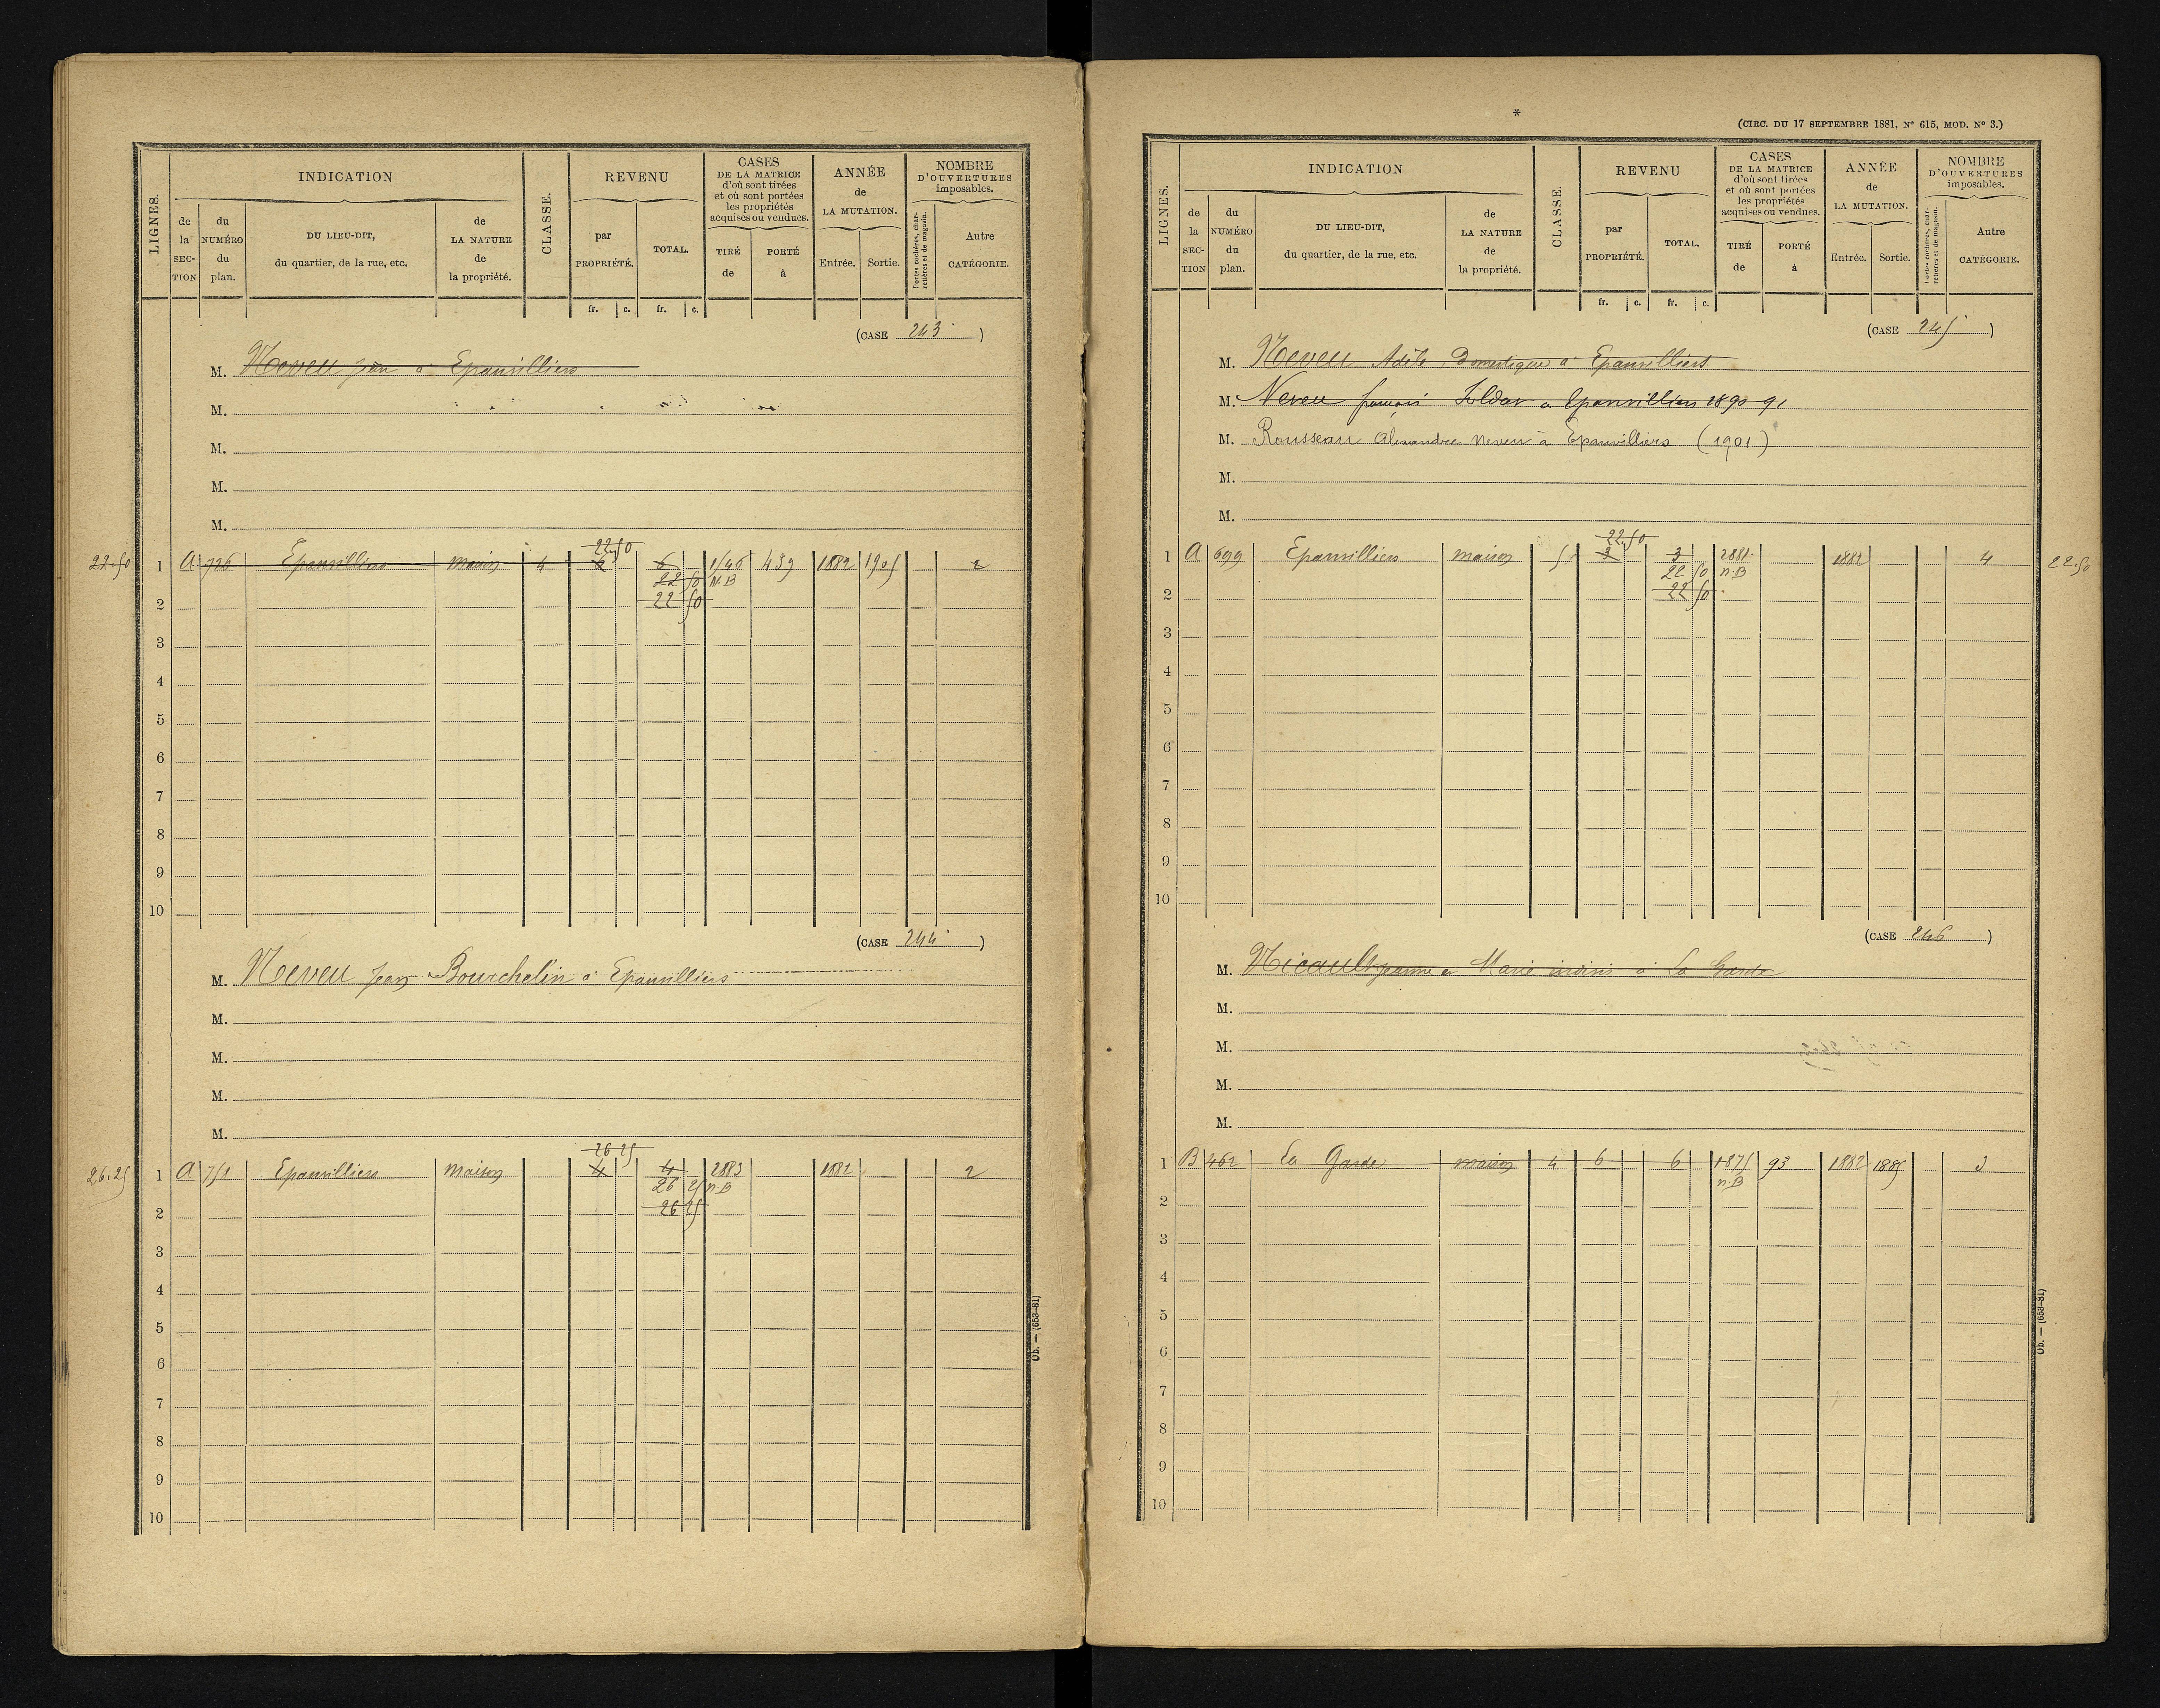 LIGNES.
INDICATION
de la SECTION
du NUMÉRO du plan.
DU LIEU-DIT, du quartier, de la rue, etc.
de LA NATURE de la propriété.
CLASSE.
REVENU
par PROPRIÉTÉ.
TOTAL.
CASES DE LA MATRICE d'où sont tirées et où sont portées les propriétés acquises ou vendues.
TIRÉ de
PORTÉ à
ANNÉE de LA MUTATION.
Entrée. Sortie.
NOMBRE D'OUVERTURES imposables.
Portes cochères, charretières et de magasin.
Autre CATÉGORIE.
fr. c. fr. c.
(CASE 243 )
M. Neveu Jean à Epanvilliers
M.
M.
M.
M.
22 50
22.50 1 A 726 Epanvilliers maison 4 6 439 1882 1905 2
22 50 N.B
2 22 50
3
4
5
6
7
8
9
10
(CASE 244 )
M. Neveu Jean Bourchelin à Epanvilliers
M.
M.
M.
M.
26 25
26.25 1 A 751 Epanvilliers maison 4 4 2883 1882 2
26 25 n.B
2 26 25
3
4
5
6
7
8
9
10
Ob. — (653-81)
*
(CIRC. DU 17 SEPTEMBRE 1881, N° 615, MOD. N° 3.)
LIGNES.
INDICATION
de la SECTION
du NUMÉRO du plan.
DU LIEU-DIT, du quartier, de la rue, etc.
de LA NATURE de la propriété.
CLASSE.
REVENU
par PROPRIÉTÉ.
TOTAL.
CASES DE LA MATRICE d'où sont tirées et où sont portées les propriétés acquises ou vendues.
TIRÉ de
PORTÉ à
ANNÉE de LA MUTATION.
Entrée. Sortie.
NOMBRE D'OUVERTURES imposables.
Portes cochères, charretières et de magasin.
Autre CATÉGORIE.
fr. c. fr. c.
(CASE 245 )
M. Neveu Adèle, Domestique à Epanvilliers
M. Neveu françois Soldat a Epanvilliers 1890-91
M. Rousseau Alexandre Neveu à Epanvilliers (1901)
M.
M.
22 50
1 A 699 Epanvilliers maison 5 3 3 2881 1882 4 22.50
22 50 n.B
2 22 50
3
4
5
6
7
8
9
10
(CASE 246 )
M. Nicault Jeanne et Marie indivis à La Garde
M.
M.
M.
M.
1 B 462 La Garde maison 4 6 6 1875 93 1882 1885 3
n.B
2
3
4
5
6
7
8
9
10
Ob. — (653-81)